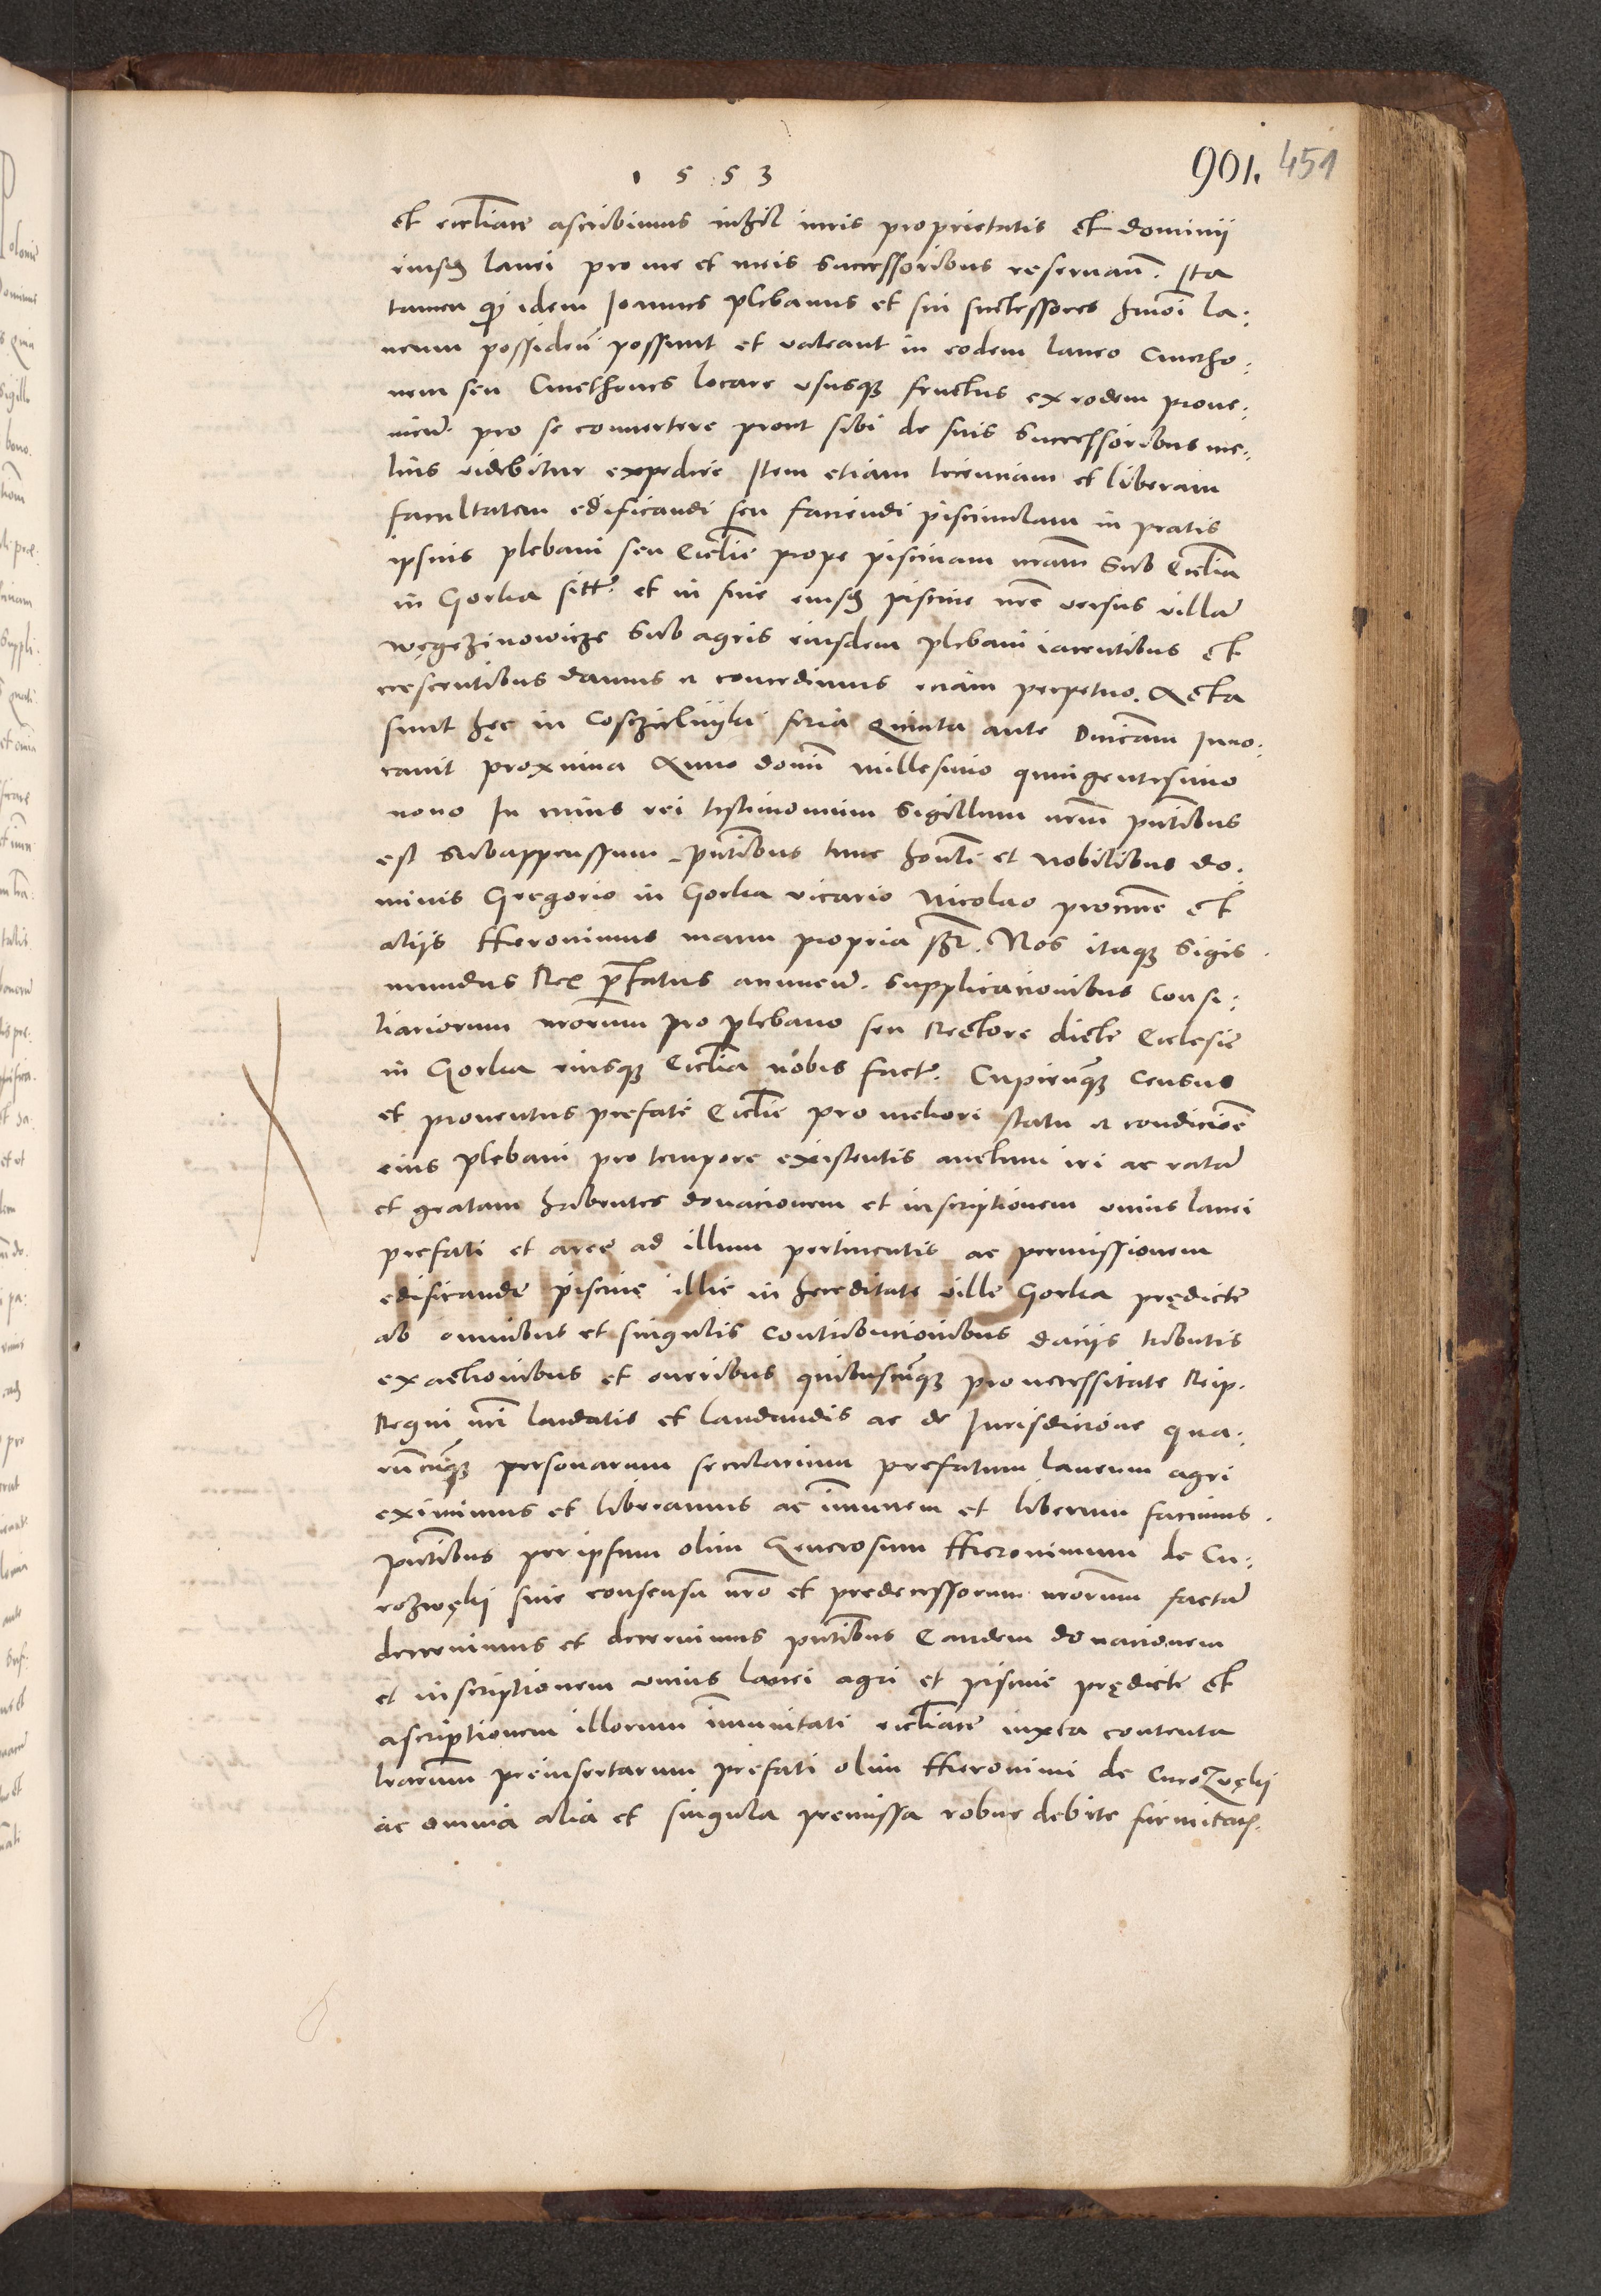 1553
901. 451
et eccl͞iace ascribimus nihil iuris proprietatis et dominii
eiusd lanei pro me et meis successoribus reseruan͞. Ita
tamen q idem Joannes plebanus et sui successores hmo͞i la:
neum possiden͞ possunt et valeant in eodem laneo Cmetho:
nem seu Cmethones locare vsusq fructus ex eodem proue:
nien͞. pro se conuertere prout sibi de suis successoribus me:
lius videbitur expedire Item etiam licenciam et liberam
facultatem edificandi seu faciendi piscinulam in pratis
ipsius plebani seu Eccl͞ie prope piscinam nr͞am sub Eccl͞ia
in Gorka sitt͞. et in fine eiusd piscine nr͞e versus villa͞
węgrzinowicze sub agris eiusdem plebani iacentibus et
crescentibus damus et concedimus eciam perpetuo. Acta
sunt hęc in Cosczieluyki feria Quinta ante Dnicam Inuo:
cauit proxima Anno domi͞ millesimo quingentesimo
nono In cuius rei testimonium sigillum nr͞um pn͞tibus
est subappenssum pn͞tibus tunc hon͞li et nobilibus do:
minis Gregorio in Gorka vicario Nicolao
alijs Hieronimus manu propria ss͞t. Nos itaq sigis
mundus Rex p͞fatus annuen͞. supplicacionibus Consi:
liariorum nr͞orum pro plebano seu Rectore dicte Ecclesie
in Gorka eiusq Eccl͞ia nobis fact͞. Cupien͞q census
et prouentus prefate Eccl͞ie pro meliori statu et condicio͞e
eius plebani pro tempore existentis auctum iri ac rata͞
et gratam habentes donacionem et inscriptionem vnius lanei
prefati et aree ad illum pertinentis ac permissionem
edificande piscine illic in hereditate ville Gorka prędicte
ab omnibus et singulis contribucionibus dacijs tributis
exactionibus et oneribus quibuscu͞q pro necessitate Reip.
Regni nr͞i laudatis et laudandis ac de Jurisdicione qua:
ru͞cu͞q personarum secularium prefatum laneum agri
eximimus et liberamus ac im͞unem et liberum facimus.
pn͞tibus per ipsum olim Generosum Hieronimum de Cu:
rozwęki siue consensu nr͞o et predecessorum nr͞orum facta͞
decreuimus et decernimus pn͞tibus Eandem donacionem
et inscriptionem vnius lanei agri et piscine prędicte et
ascriptionem illorum im͞unitati eccl͞iace iuxta contenta
lr͞arum preinsertarum prefati olim Hieronimi de Curozvęki
ac omnia alia et singula premissa robur debite firmitatis.